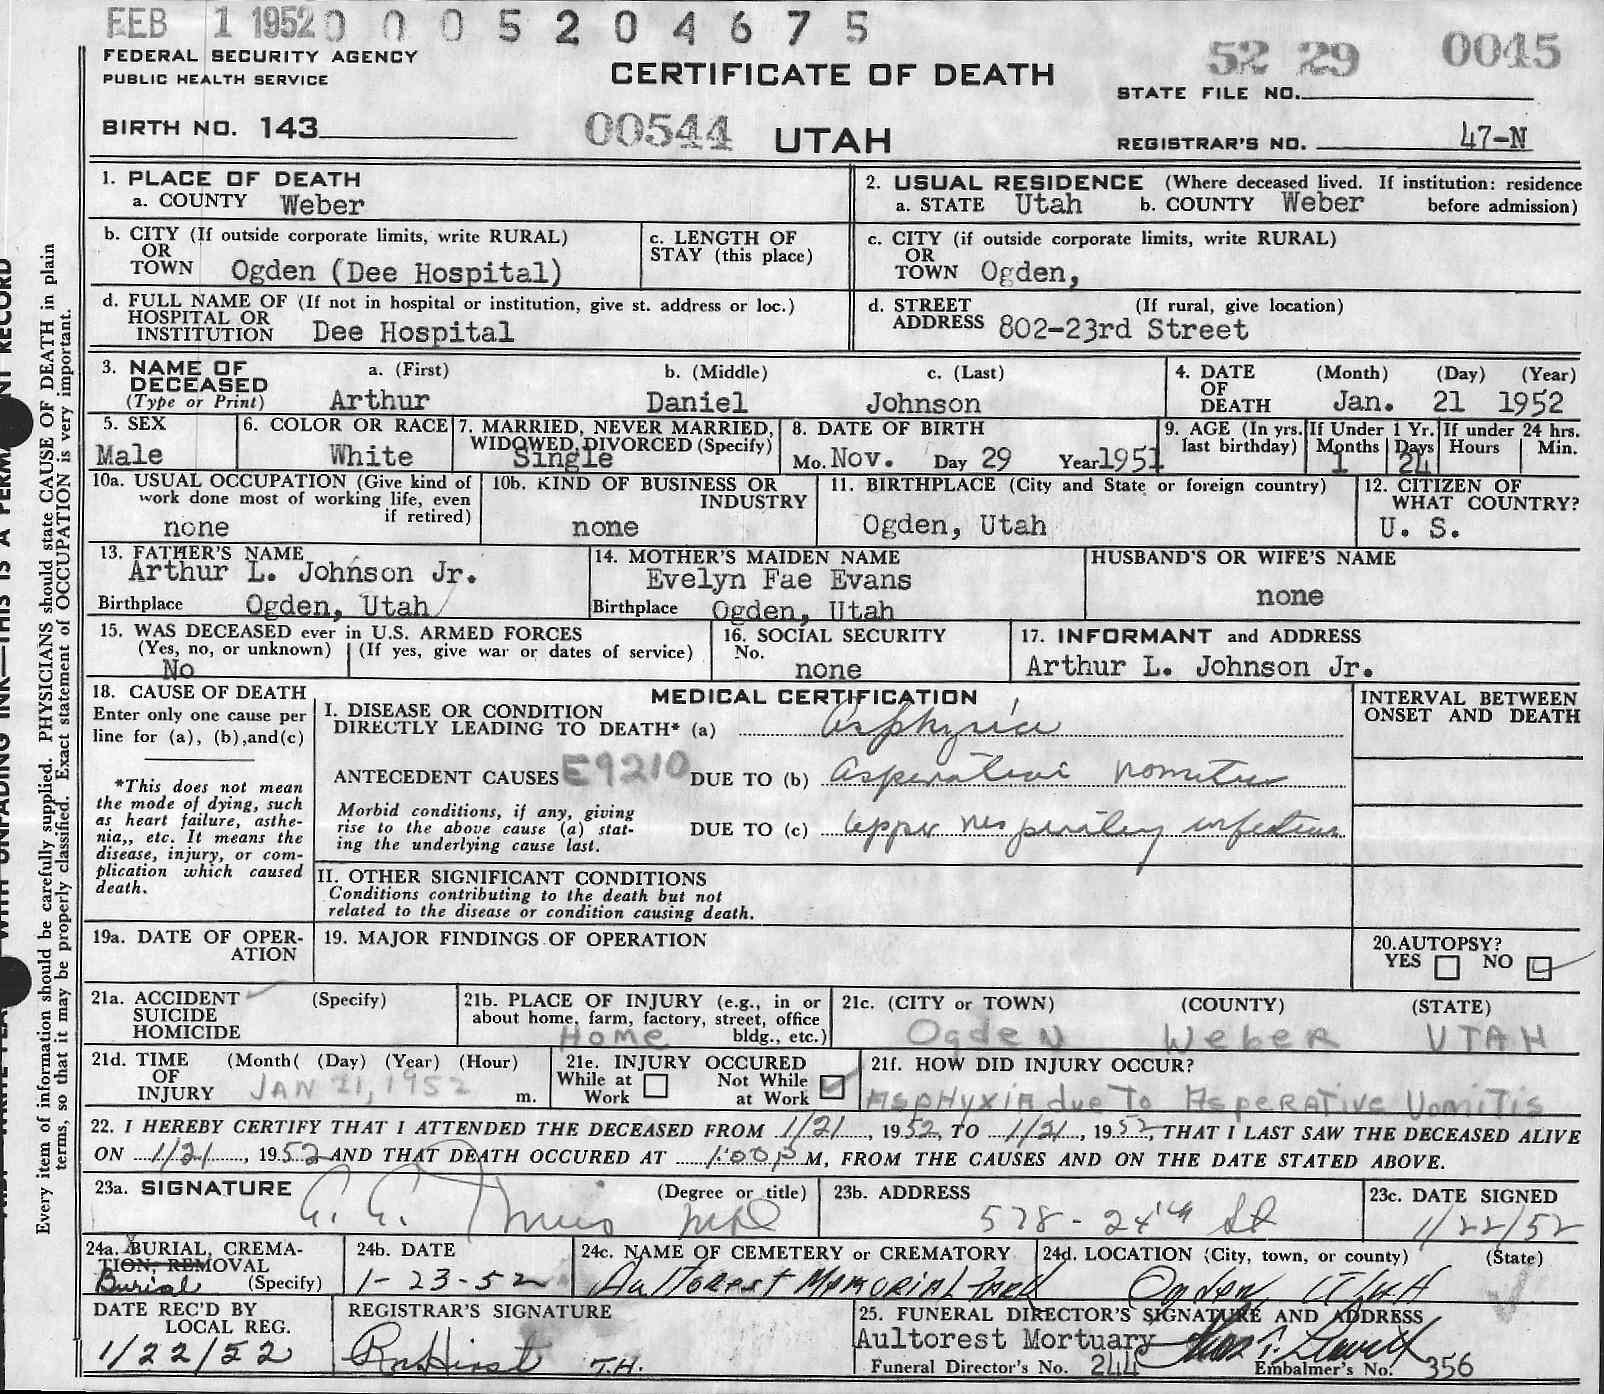 FEB 1 1952 0 0 0 5 2 0 4 6 7 5
FEDERAL SECURITY AGENCY
PUBLIC HEALTH SERVICE
CERTIFICATE OF DEATH
52 29 0045
STATE FILE NO.
BIRTH NO. 143
00544 UTAH
REGISTRAR'S NO. 47-N
1. PLACE OF DEATH
a. COUNTY Weber
2. USUAL RESIDENCE (Where deceased lived. If institution: residence
a. STATE Utah b. COUNTY Weber before admission)
b. CITY (If outside corporate limits, write RURAL)
OR
TOWN Ogden (Dee Hospital)
c. LENGTH OF
STAY (this place)
c. CITY (if outside corporate limits, write RURAL)
OR
TOWN Ogden,
d. FULL NAME OF (If not in hospital or institution, give st. address or loc.)
HOSPITAL OR
INSTITUTION Dee Hospital
d. STREET (If rural, give location)
ADDRESS 802-23rd Street
3. NAME OF a. (First) b. (Middle) c. (Last)
DECEASED
(Type or Print) Arthur Daniel Johnson
4. DATE (Month) (Day) (Year)
OF
DEATH Jan. 21 1952
5. SEX
Male
6. COLOR OR RACE
White
7. MARRIED, NEVER MARRIED,
WIDOWED, DIVORCED (Specify)
Single
8. DATE OF BIRTH
Mo. Nov. Day 29 Year 1951
9. AGE (In yrs.
last birthday)
If Under 1 Yr.
Months Days
1 24
If under 24 hrs.
Hours Min.
10a. USUAL OCCUPATION (Give kind of
work done most of working life, even
if retired)
none
10b. KIND OF BUSINESS OR
INDUSTRY
none
11. BIRTHPLACE (City and State or foreign country)
Ogden, Utah
12. CITIZEN OF
WHAT COUNTRY?
U. S.
13. FATHER'S NAME
Arthur L. Johnson Jr.
Birthplace Ogden, Utah
14. MOTHER'S MAIDEN NAME
Evelyn Fae Evans
Birthplace Ogden, Utah
HUSBAND'S OR WIFE'S NAME
none
15. WAS DECEASED ever in U.S. ARMED FORCES
(Yes, no, or unknown) (If yes, give war or dates of service)
No
16. SOCIAL SECURITY
No.
none
17. INFORMANT and ADDRESS
Arthur L. Johnson Jr.
18. CAUSE OF DEATH
Enter only one cause per
line for (a), (b), and (c)
*This does not mean
the mode of dying, such
as heart failure, asthe-
nia,, etc. It means the
disease, injury, or com-
plication which caused
death.
MEDICAL CERTIFICATION
I. DISEASE OR CONDITION
DIRECTLY LEADING TO DEATH* (a) Asphyxia
ANTECEDENT CAUSES E9210 DUE TO (b) Asperative vomitus
Morbid conditions, if any, giving
rise to the above cause (a) stat-
ing the underlying cause last.
DUE TO (c) Upper respiratory infection
INTERVAL BETWEEN
ONSET AND DEATH
II. OTHER SIGNIFICANT CONDITIONS
Conditions contributing to the death but not
related to the disease or condition causing death.
19a. DATE OF OPER-
ATION
19. MAJOR FINDINGS OF OPERATION
20. AUTOPSY?
YES NO
21a. ACCIDENT (Specify)
SUICIDE
HOMICIDE
21b. PLACE OF INJURY (e.g., in or
about home, farm, factory, street, office
bldg., etc.)
Home
21c. (CITY or TOWN) (COUNTY) (STATE)
Ogden Weber UTAH
21d. TIME (Month( (Day) (Year) (Hour)
OF
INJURY JAN 21, 1952 m.
21e. INJURY OCCURED
While at Not While
Work at Work
21f. HOW DID INJURY OCCUR?
Asphyxia due To Asperative Vomitis
22. I HEREBY CERTIFY THAT I ATTENDED THE DECEASED FROM 1/21, 1952, TO 1/21, 1952, THAT I LAST SAW THE DECEASED ALIVE
ON 1/21, 1952 AND THAT DEATH OCCURED AT 1:00 P M, FROM THE CAUSES AND ON THE DATE STATED ABOVE.
23a. SIGNATURE (Degree or title)
MD
23b. ADDRESS
578 - 24th St
23c. DATE SIGNED
1/22/52
24a. BURIAL, CREMA-
TION, REMOVAL
Burial (Specify)
24b. DATE
1-23-52
24c. NAME OF CEMETERY or CREMATORY
Aultorest Memorial Park
24d. LOCATION (City, town, or county) (State)
Ogden UTAH
DATE REC'D BY
LOCAL REG.
1/22/52
REGISTRAR'S SIGNATURE
T.H.
25. FUNERAL DIRECTOR'S SIGNATURE AND ADDRESS
Aultorest Mortuary
Funeral Director's No. 244 Embalmer's No. 356
Every item of information should be carefully supplied. PHYSICIANS should state CAUSE OF DEATH in plain
terms, so that it may be properly classified. Exact statement of OCCUPATION is very important.